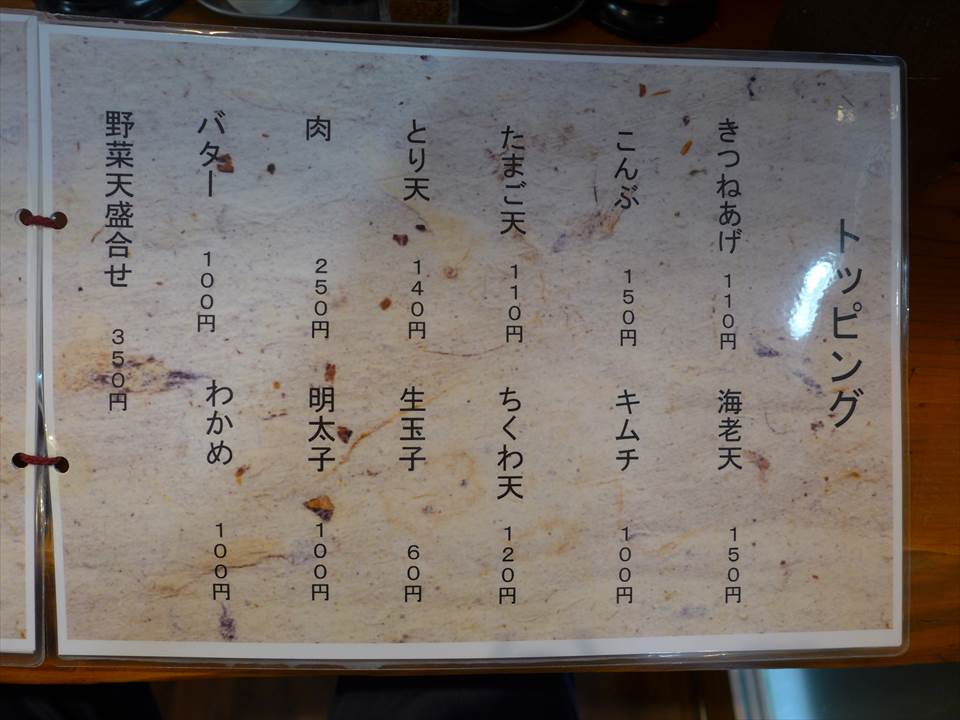 トッピング
きつねあげ 110円
海老天 150円
こんぶ 150円
キムチ 100円
たまご天 110円
ちくわ天 120円
とり天 140円
生玉子 60円
肉 250円
明太子 100円
バター 100円
わかめ 100円
野菜天盛合せ 350円